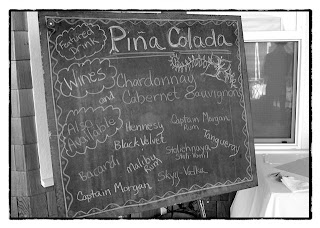 Featured
Drink
Piña Colada
Wines
Chardonnay
and
Cabernet Sauvignon
Also
Available
Hennesy
Captain Morgan
Rum
Black Velvet
Tanqueray
Bacardi
Malibu
Rum
Stolichnaya
Captain Morgan
Skyy Vodka